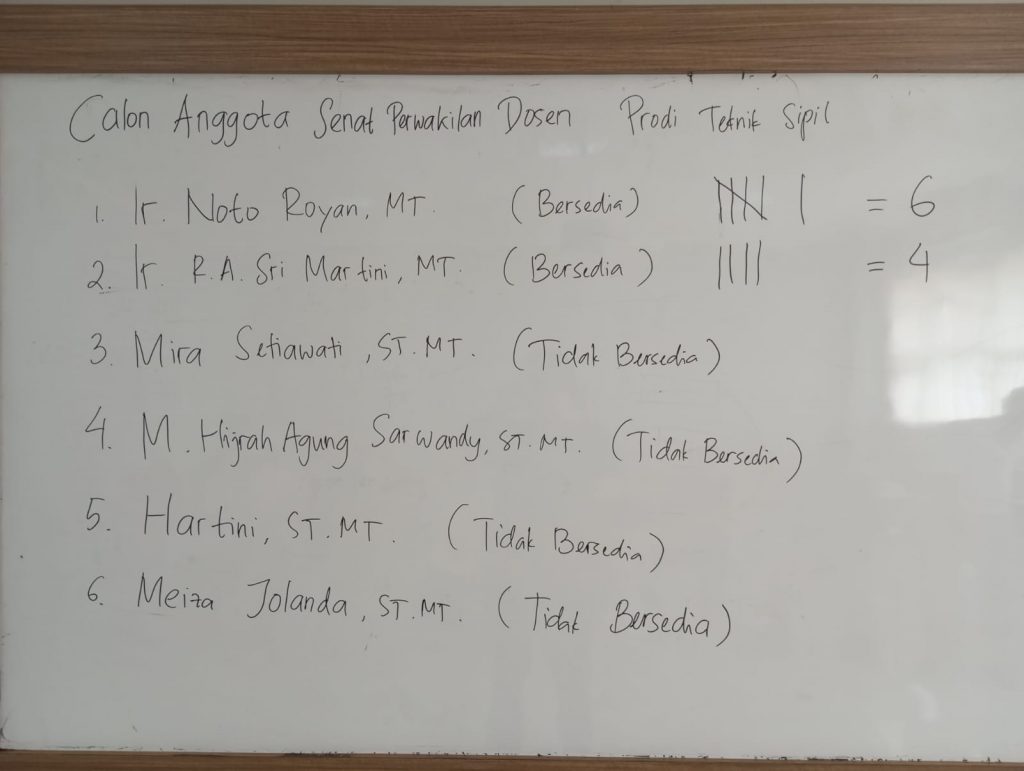 Calon Anggota Senat Perwakilan Dosen Prodi Teknik Sipil
1. Ir. Noto Royan, MT. (Bersedia) = 6
2. Ir. R.A. Sri Martini, MT. (Bersedia) = 4
3. Mira Setiawati, ST.MT. (Tidak Bersedia)
4. M. Hijrah Agung Sarwandy, ST.MT. (Tidak Bersedia)
5. Hartini, ST.MT. (Tidak Bersedia)
6. Meiza Jolanda, ST.MT. (Tidak Bersedia)